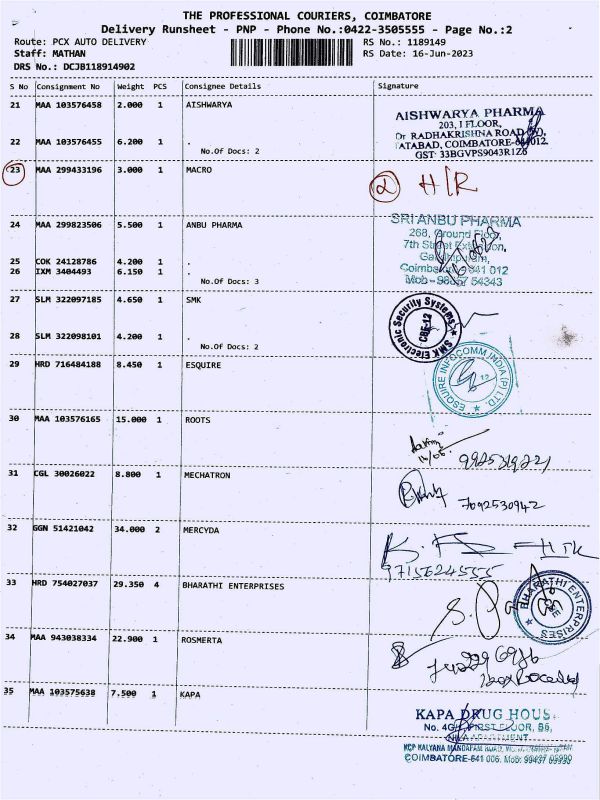 THE PROFESSIONAL COURIERS, COIMBATORE
Delivery Runsheet - PNP - Phone No.:0422-3505555 - Page No.:2
Route: PCX AUTO DELIVERY
RS No.: 1189149
Staff: MATHAN
RS Date: 16-Jun-2023
DRS No.: DCJB118914902
S No Consignment No Weight PCS Consignee Details Signature
21 MAA 103576458 2.000 1 AISHWARYA
AISHWARYA PHARMA
203, I FLOOR,
Dr RADHAKRISHNA ROAD
TATABAD, COIMBATORE-641012.
GST: 33BGVPS9043R1Z6
22 MAA 103576455 6.200 1 .
No.Of Docs: 2
23 MAA 299433196 3.000 1 MACRO
H/R
24 MAA 299823506 5.500 1 ANBU PHARMA
SRI ANBU PHARMA
268, Ground Floor,
7th Street Extention,
Gandhipuram,
Coimbatore 641 012
Mob - 54343
25 COK 24128786 4.200 1 .
26 IXM 3404493 6.150 1 .
No.Of Docs: 3
27 SLM 322097185 4.650 1 SMK
SMK Electronic Security Systems
CBE-12
28 SLM 322098101 4.200 1 .
No.Of Docs: 2
29 HRD 716484188 8.450 1 ESQUIRE
ESQUIRE INFOCOMM INDIA (P) LTD
30 MAA 103576165 15.000 1 ROOTS
16/06
31 CGL 30026022 8.800 1 MECHATRON
7092530942
32 GGN 51421042 34.000 2 MERCYDA
9715624555
33 HRD 754027037 29.350 4 BHARATHI ENTERPRISES
BHARATHI ENTERPRISES
34 MAA 943038334 22.900 1 ROSMERTA
35 MAA 103575638 7.500 1 KAPA
KAPA DRUG HOUS
No. 4G FIRST FLOOR, B6,
KCP KALYANA MANDAPAM ROAD,
COIMBATORE-641 006. Mob: 99437 09990